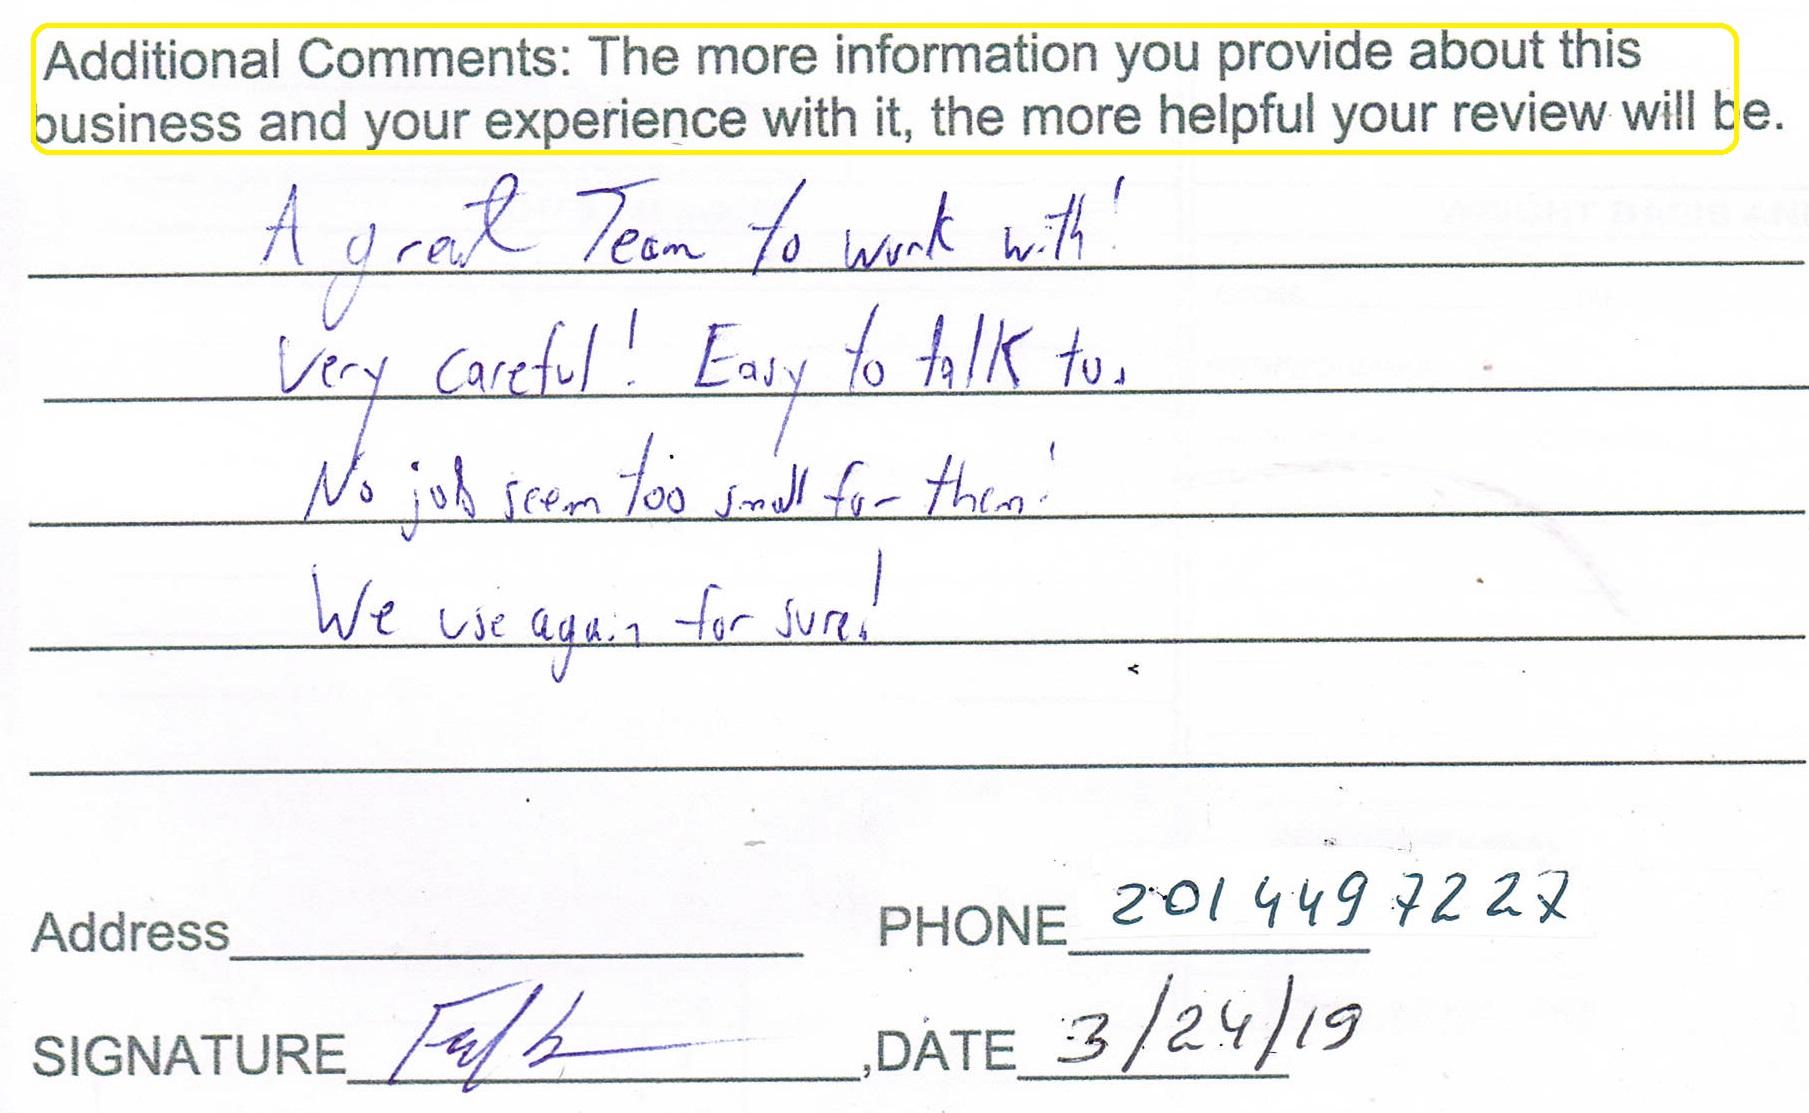 Additional Comments: The more information you provide about this
business and your experience with it, the more helpful your review will be.
A great Team to work with!
Very careful! Easy to talk to.
No job seem too small for them!
We use again for sure!
Address PHONE 201 449 7227
SIGNATURE ,DATE 3/24/19